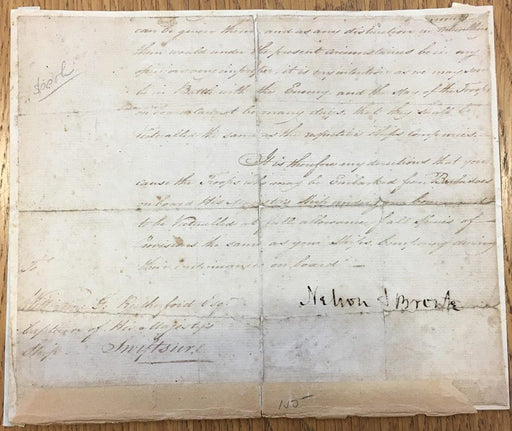 can be given them and as any distinction in
then would under the present circumstances be in my
opinion very improper, it is my intention as we may so
be in Battle with the Enemy and the stay of the Troops
on board cannot be many days, that they shall be
victualled the same as the respective Ships Companies.
It is therefore my directions that you
cause the Troops who may be Embarked from Barbadoes
on board His Majesty's Ship under your command
to be Victualled at full allowance of all Species of
Provisions the same as your Ship's Company during
their continuance on board.
To
William G. Rutherford Esqr
Captain of His Majesty's
Ship Swiftsure
Nelson & Bronte